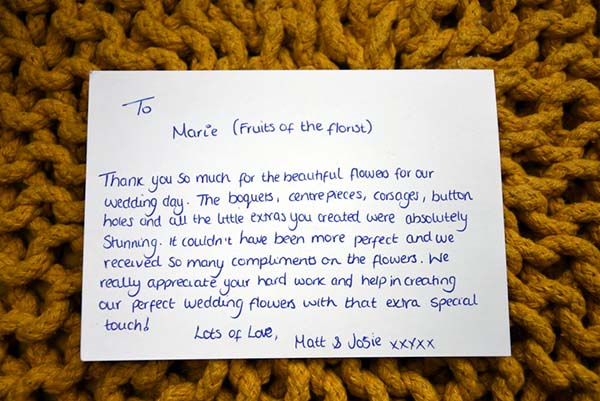 To
Marie (Fruits of the florist)
Thank you so much for the beautiful flowers for our
wedding day. The boquets, centrepieces, corsages, button
holes and all the little extras you created were absolutely
Stunning. It couldn't have been more perfect and we
received so many compliments on the flowers. We
really appreciate your hard work and help in creating
our perfect wedding flowers with that extra special
touch!
Lots of Love,
Matt & Josie xxxxx